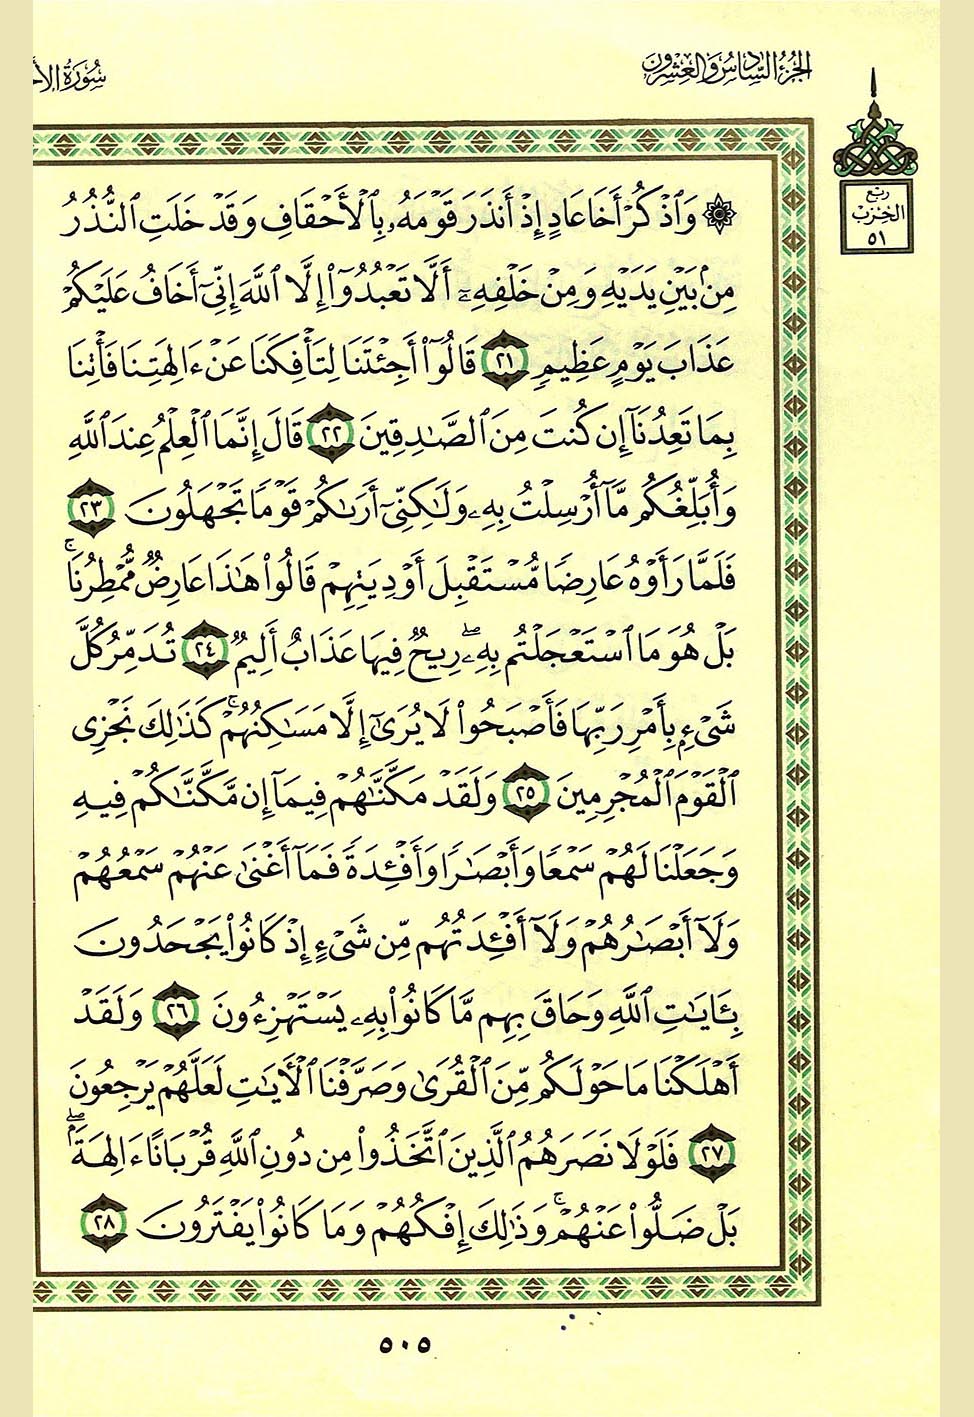 الجزء السادس والعشرون
سورة الأح
ربع
الحزب
٥١
۞ وَٱذْكُرْ أَخَا عَادٍ إِذْ أَنذَرَ قَوْمَهُۥ بِٱلْأَحْقَافِ وَقَدْ خَلَتِ ٱلنُّذُرُ
مِنۢ بَيْنِ يَدَيْهِ وَمِنْ خَلْفِهِۦٓ أَلَّا تَعْبُدُوٓا۟ إِلَّا ٱللَّهَ إِنِّىٓ أَخَافُ عَلَيْكُمْ
عَذَابَ يَوْمٍ عَظِيمٍ ٢١ قَالُوٓا۟ أَجِئْتَنَا لِتَأْفِكَنَا عَنْ ءَالِهَتِنَا فَأْتِنَا
بِمَا تَعِدُنَآ إِن كُنتَ مِنَ ٱلصَّـٰدِقِينَ ٢٢ قَالَ إِنَّمَا ٱلْعِلْمُ عِندَ ٱللَّهِ
وَأُبَلِّغُكُم مَّآ أُرْسِلْتُ بِهِۦ وَلَـٰكِنِّىٓ أَرَىٰكُمْ قَوْمًا تَجْهَلُونَ ٢٣
فَلَمَّا رَأَوْهُ عَارِضًا مُّسْتَقْبِلَ أَوْدِيَتِهِمْ قَالُوا۟ هَـٰذَا عَارِضٌ مُّمْطِرُنَا ۚ
بَلْ هُوَ مَا ٱسْتَعْجَلْتُم بِهِۦ ۖ رِيحٌ فِيهَا عَذَابٌ أَلِيمٌ ٢٤ تُدَمِّرُ كُلَّ
شَىْءٍۭ بِأَمْرِ رَبِّهَا فَأَصْبَحُوا۟ لَا يُرَىٰٓ إِلَّا مَسَـٰكِنُهُمْ ۚ كَذَٰلِكَ نَجْزِى
ٱلْقَوْمَ ٱلْمُجْرِمِينَ ٢٥ وَلَقَدْ مَكَّنَّـٰهُمْ فِيمَآ إِن مَّكَّنَّـٰكُمْ فِيهِ
وَجَعَلْنَا لَهُمْ سَمْعًا وَأَبْصَـٰرًا وَأَفْـِٔدَةً فَمَآ أَغْنَىٰ عَنْهُمْ سَمْعُهُمْ
وَلَآ أَبْصَـٰرُهُمْ وَلَآ أَفْـِٔدَتُهُم مِّن شَىْءٍ إِذْ كَانُوا۟ يَجْحَدُونَ
بِـَٔايَـٰتِ ٱللَّهِ وَحَاقَ بِهِم مَّا كَانُوا۟ بِهِۦ يَسْتَهْزِءُونَ ٢٦ وَلَقَدْ
أَهْلَكْنَا مَا حَوْلَكُم مِّنَ ٱلْقُرَىٰ وَصَرَّفْنَا ٱلْـَٔايَـٰتِ لَعَلَّهُمْ يَرْجِعُونَ
٢٧ فَلَوْلَا نَصَرَهُمُ ٱلَّذِينَ ٱتَّخَذُوا۟ مِن دُونِ ٱللَّهِ قُرْبَانًا ءَالِهَةًۢ ۖ
بَلْ ضَلُّوا۟ عَنْهُمْ ۚ وَذَٰلِكَ إِفْكُهُمْ وَمَا كَانُوا۟ يَفْتَرُونَ ٢٨
٥٠٥